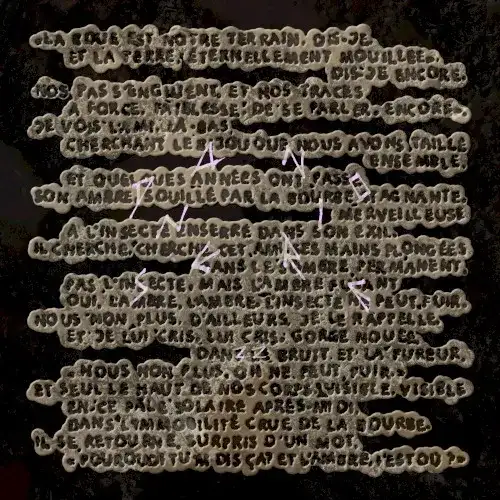 «LA BOUE EST NOTRE TERRAIN, DIS-JE,
ET LA TERRE, ÉTERNELLEMENT MOUILLÉE»,
DIS-JE ENCORE.
NOS PAS S'ENGLUENT, ET NOS TRACES
FORCE, DE SE PARLER ENCORE.
JE VOIS L'AMI, LÀ-BAS
CHERCHANT LE QUE NOUS AVONS TAILLÉ
ENSEMBLE,
ET QUELQUES ANNÉES ONT PASSÉ
SON AMBRE SOUILLÉ PAR LA BOURBE STAGNANTE,
MERVEILLEUSE
À L'INSECTE ENSERRÉ DANS SON EXIL.
IL CHERCHE, CHERCHE CET AMI, SES MAINS PLONGÉES
DANS LE PERMANENT,
PAS L'INSECTE, MAIS L'AMBRE FUYANT
OUI, L'AMBRE, L'AMBRE, L'INSECTE NE PEUT FUIR,
NOUS NON PLUS, D'AILLEURS, JE LE RAPPELLE
ET JE LUI CRIS, LUI CRIS, GORGE NOUÉE,
DANS LE BRUIT ET LA FUREUR,
NOUS NON PLUS, ON NE PEUT FUIR,
ET SEUL LE HAUT DE NOS CORPS VISIBLE, VISIBLE
EN CE PÂLE SOLAIRE APRÈS-MIDI,
DANS L'IMMOBILITÉ CRUE DE LA BOURBE.
IL SE RETOURNE, SURPRIS D'UN MOT,
«POURQUOI TU DIS ÇA? ET L'AMBRE, T'EST OÙ ?»